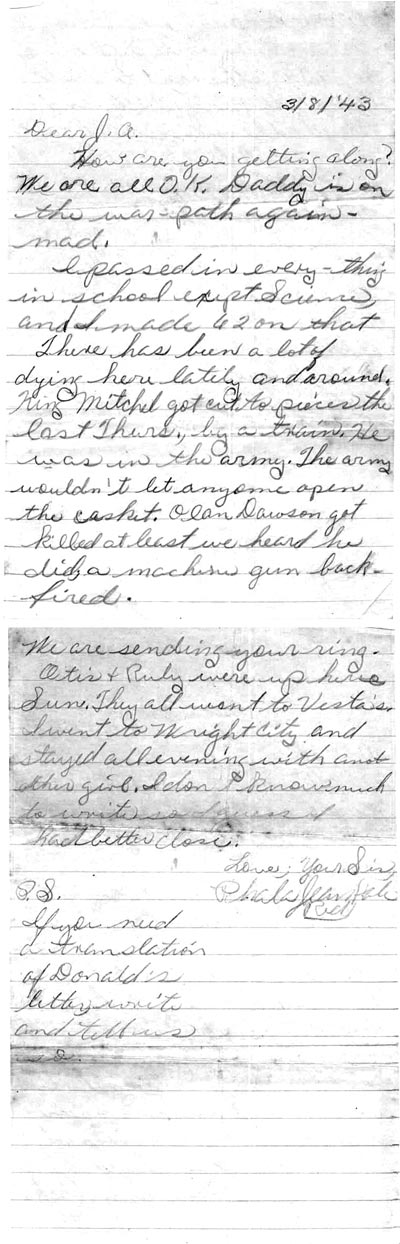 3/8/'43
Dear J. A.
How are you getting along?
We are all O.K. Daddy is on
the war-path again-
mad.
I passed in every-thing
in school exept Science,
and I made 62 on that
There has been a lot of
dying here lately and around.
King Mitchel got cut to pieces the
last Thurs., by a train. He
was in the army. The army
wouldn't let anyone open
the casket. Olan Dawson got
killed at least we heard he
did, a machine gun back-
fired.
We are sending your ring.
Otis & Ruby were up here
Sun. They all went to Vesta's.
I went to Wright City and
stayed all evening with anot
ther girl. I don't know much
to write so I guess I
had better close.
Love, Your Sis,
Phala Jean
P.S.
If you need
a translation
of Donald's
letter write
and tell us
so.